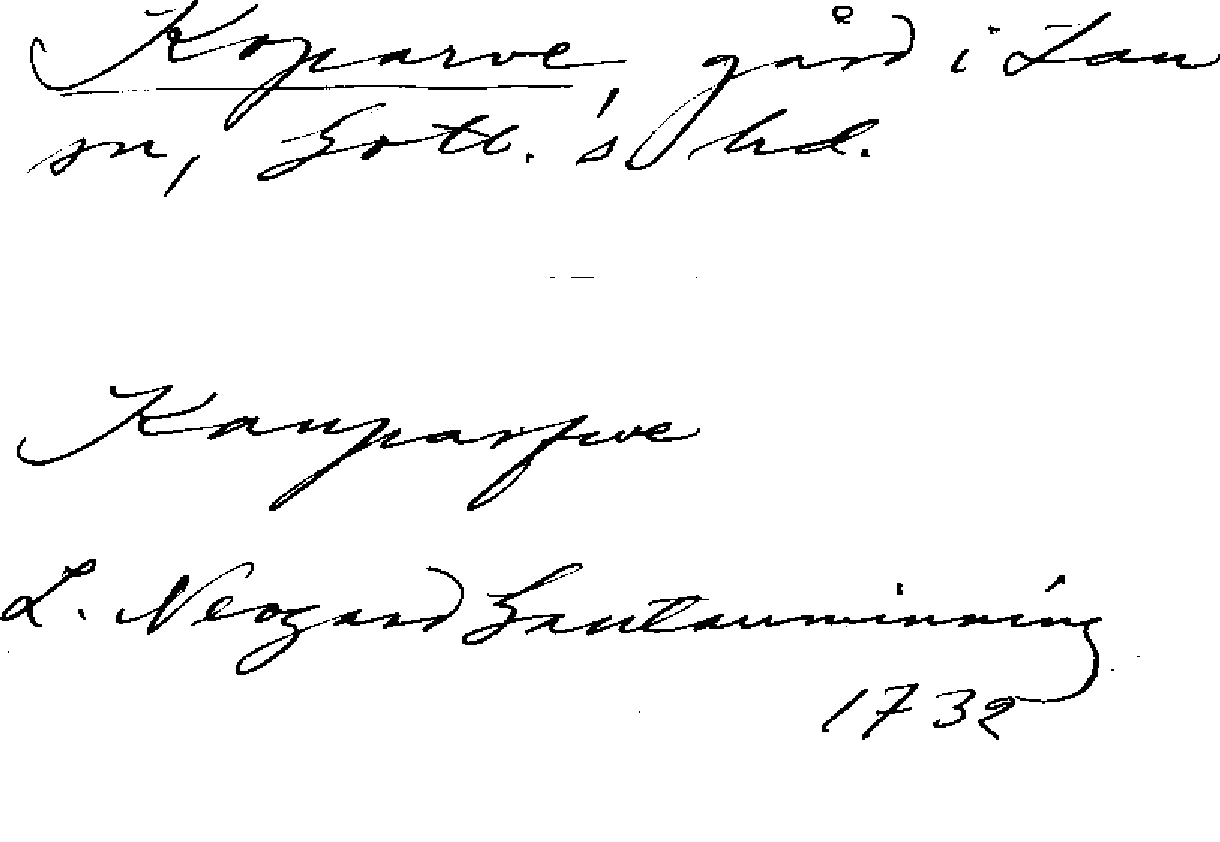 Koparve, gård i Lau
sn, Gotl. s hd.
Kauparfve
L. Neogard Gautauminning
1732